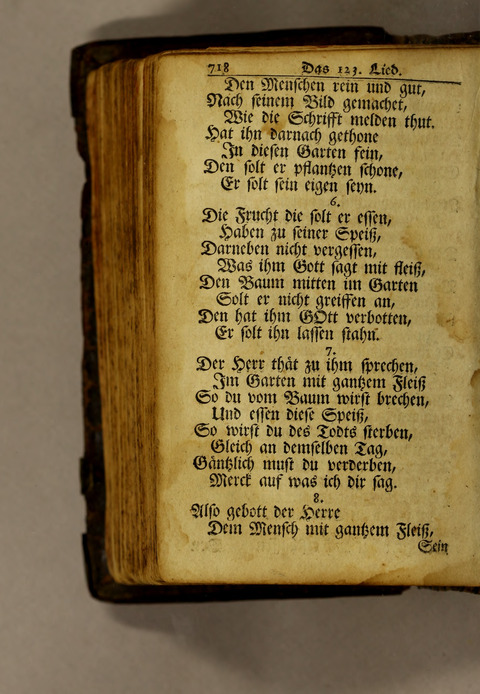 718 Das 123. Lied.
Den Menschen rein und gut,
Nach seinem Bild gemachet,
Wie die Schrifft melden thut.
Hat ihn darnach gethone
In diesen Garten fein,
Den solt er pflantzen schone,
Er solt sein eigen seyn.
6.
Die Frucht die solt er essen,
Haben zu seiner Speiß,
Darneben nicht vergessen,
Was ihm Gott sagt mit fleiß,
Den Baum mitten im Garten
Solt er nicht greiffen an,
Den hat ihm GOtt verbotten,
Er solt ihn lassen stahn.
7.
Der Herr thät zu ihm sprechen,
Im Garten mit gantzem Fleiß
So du vom Baum wirst brechen,
Und essen diese Speiß,
So wirst du des Todts sterben,
Gleich an demselben Tag,
Gäntzlich must du verderben,
Merck auf was ich dir sag.
8.
Also gebott der Herre
Dem Mensch mit gantzem Fleiß,
Sein